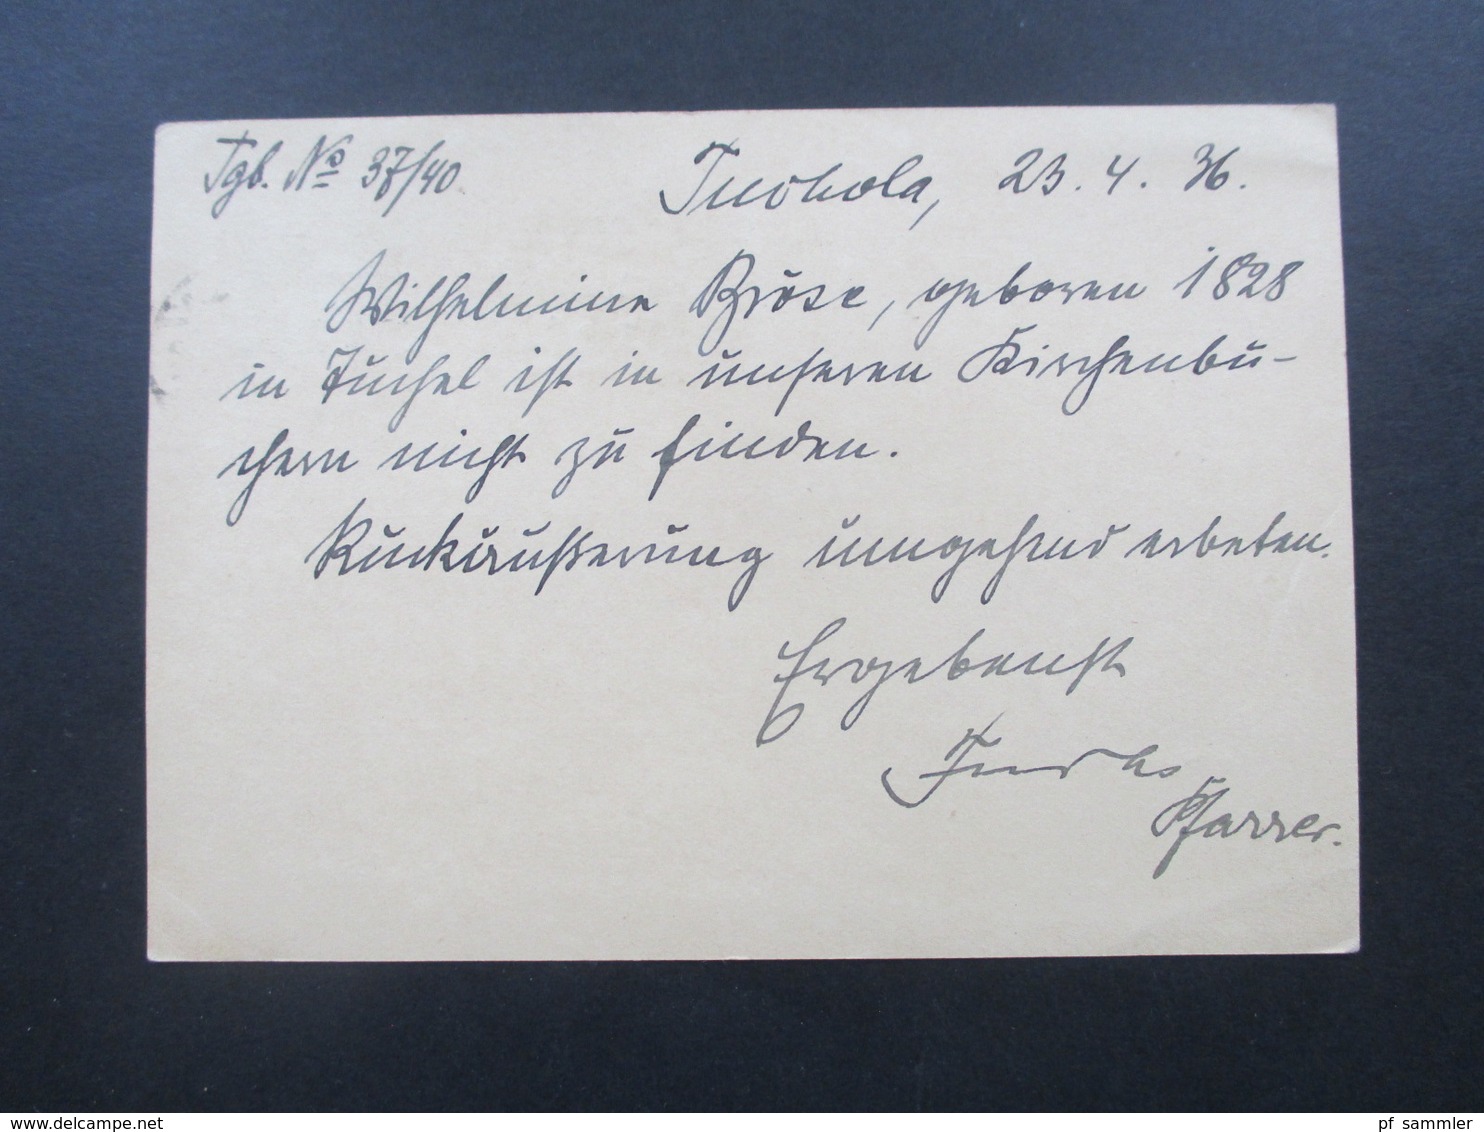 Tgb. No 37/40 Tuchola, 23. 4. 36.
Wilhelmine Bröse, geboren 1828
in Tuchel ist in unseren Kirchenbü-
chern nicht zu finden.
Rückäußerung umgehend erbeten.
Ergebenst
Pfarrer.
www.delcampe.net
pf_sammler